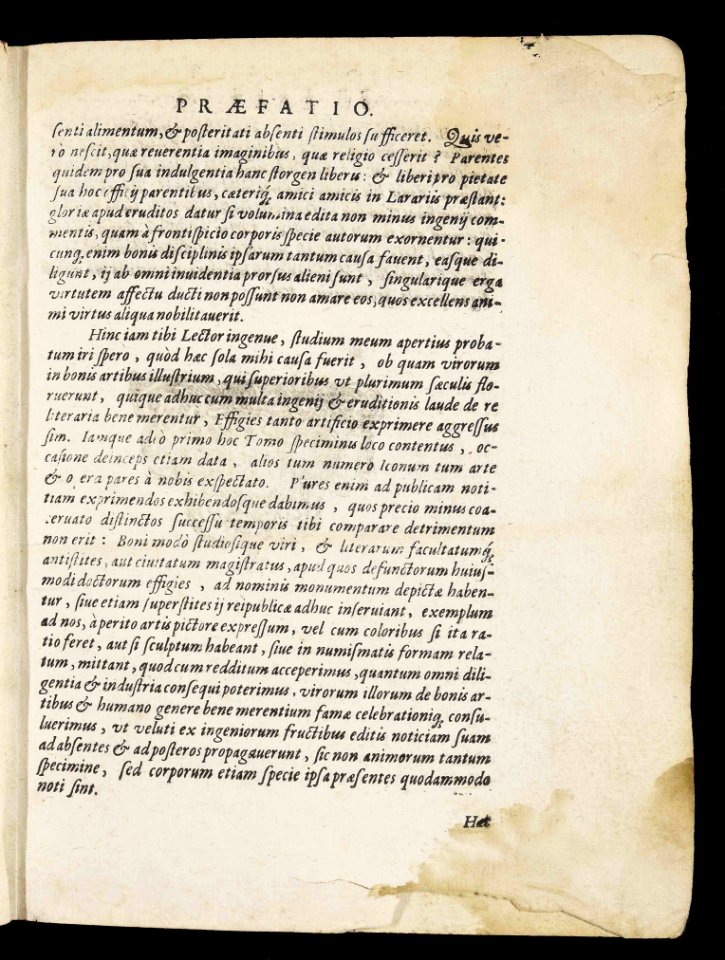 PRÆFATIO.
ſenti alimentum, & poſteritati abſenti ſtimulos ſufficeret. Quis ve-
rò neſcit, quæ reuerentia imaginibus, quæ religio ceſſerit? Parentes
quidem pro ſua indulgentia hanc ſtorgen liberis: & liberi pro pietate
ſua hoc officij parentibus, cæteriq́, amici amicis in Larariis præſtant:
gloriæ apud eruditos datur ſi volumina edita non minus ingenij com-
mentis, quam à frontiſpicio corporis ſpecie autorum exornentur: qui-
cunq́, enim bonis diſciplinis ipſarum tantum cauſa fauent, eaſque di-
ligunt, ij ab omni inuidentia prorſus alieni ſunt, ſingularique erga
virtutem affectu ducti non poſſunt non amare eos, quos excellens ani-
mi virtus aliqua nobilitauerit.
Hinc iam tibi Lector ingenue, ſtudium meum apertius proba-
tum iri ſpero, quòd hæc ſola mihi cauſa fuerit, ob quam virorum
in bonis artibus illuſtrium, qui ſuperioribus vt plurimum ſæculis flo-
ruerunt, quique adhuc cum multa ingenij & eruditionis laude de re
literaria bene merentur, Effigies tanto artificio exprimere aggreſſus
ſim. Iamque adeò primo hoc Tomo ſpeciminis loco contentus, oc-
caſione deinceps etiam data, alios tum numero Iconum tum arte
& opera pares à nobis exſpectato. Plures enim ad publicam noti-
tiam exprimendos exhibendoſque dabimus, quos precio minus coa-
ceruato diſtinctos ſucceſſu temporis tibi comparare detrimentum
non erit: Boni modò ſtudioſique viri, & literarum facultatumq́,
antiſtites, aut ciuitatum magiſtratus, apud quos defunctorum huiuſ-
modi doctorum effigies, ad nominis monumentum depictæ haben-
tur, ſiue etiam ſuperſtites ij reipublicæ adhuc inſeruiant, exemplum
ad nos, à perito artis pictore expreſſum, vel cum coloribus ſi ita ra-
tio feret, aut ſi ſculptum habeant, ſiue in numiſmatis formam rela-
tum, mittant, quod cum redditum acceperimus, quantum omni dili-
gentia & induſtria conſequi poterimus, virorum illorum de bonis ar-
tibus & humano genere bene merentium famæ celebrationiq́, conſu-
luerimus, vt veluti ex ingeniorum fructibus editis noticiam ſuam
ad abſentes & ad poſteros propagauerunt, ſic non animorum tantum
ſpecimine, ſed corporum etiam ſpecie ipſa præſentes quodammodo
noti ſint.
Hæc